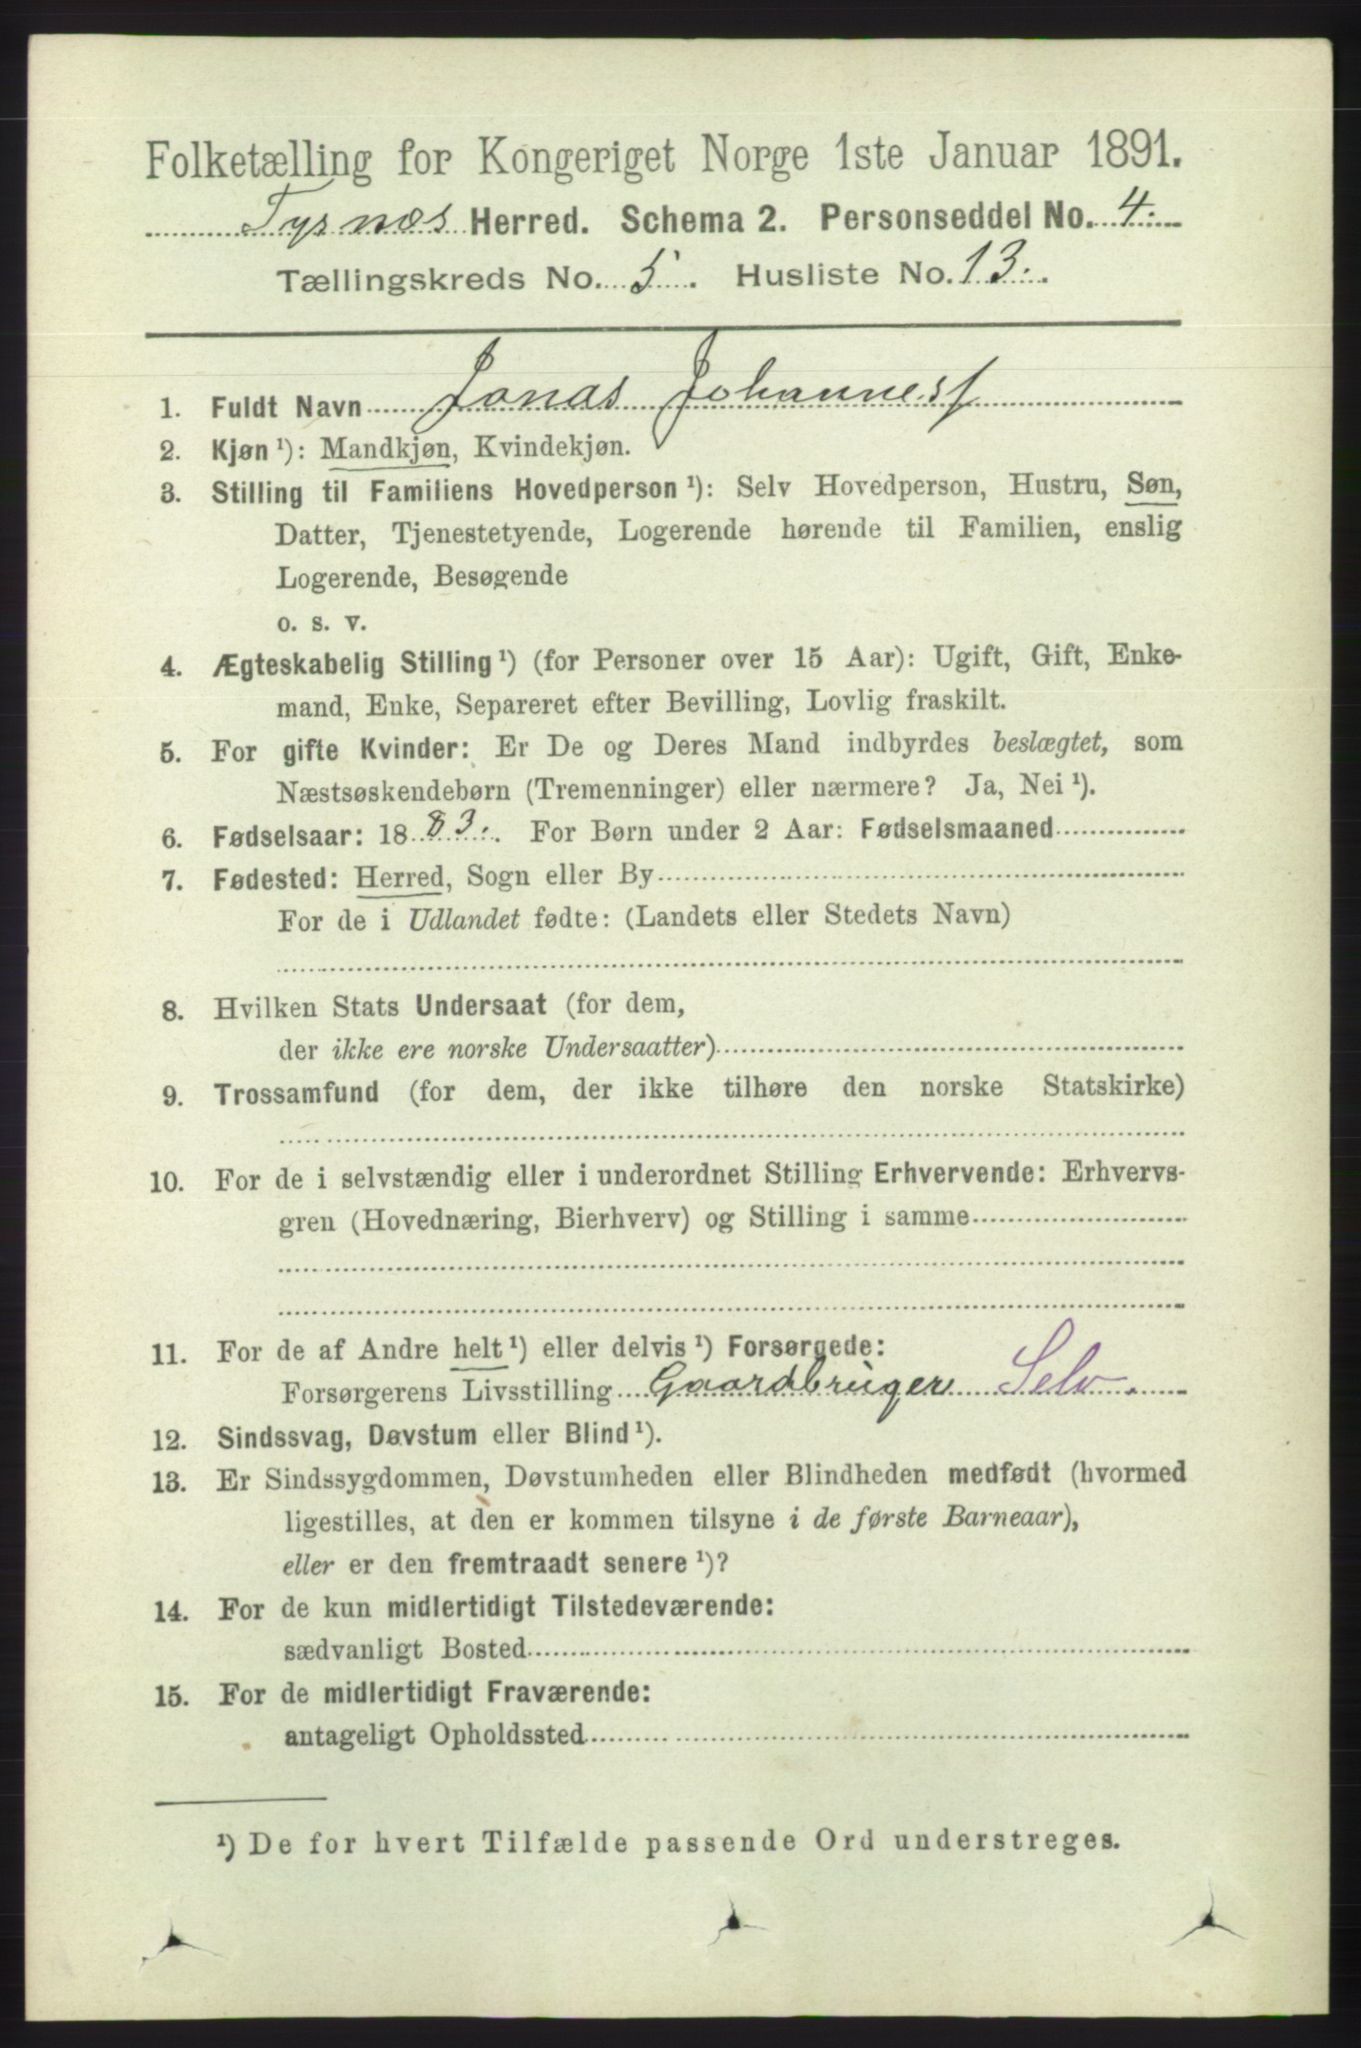 Folketælling for Kongeriget Norge 1ste Januar 1891.
Tysnæs Herred. Schema 2. Personseddel No. 4.
Tællingskreds No. 5. Husliste No. 13.
1. Fuldt Navn Jonas Johannesf
2. Kjøn ¹): Mandkjøn, Kvindekjøn.
3. Stilling til Familiens Hovedperson ¹): Selv Hovedperson, Hustru, Søn,
Datter, Tjenestetyende, Logerende hørende til Familien, enslig
Logerende, Besøgende
o. s. v.
4. Ægteskabelig Stilling ¹) (for Personer over 15 Aar): Ugift, Gift, Enke-
mand, Enke, Separeret efter Bevilling, Lovlig fraskilt.
5. For gifte Kvinder: Er De og Deres Mand indbyrdes beslægtet, som
Næstsøskendebørn (Tremenninger) eller nærmere? Ja, Nei ¹).
6. Fødselsaar: 1883. For Børn under 2 Aar: Fødselsmaaned
7. Fødested: Herred, Sogn eller By
For de i Udlandet fødte: (Landets eller Stedets Navn)
8. Hvilken Stats Undersaat (for dem,
der ikke ere norske Undersaatter)
9. Trossamfund (for dem, der ikke tilhøre den norske Statskirke)
10. For de i selvstændig eller i underordnet Stilling Erhvervende: Erhvervs-
gren (Hovednæring, Bierhverv) og Stilling i samme
11. For de af Andre helt ¹) eller delvis ¹) Forsørgede:
Forsørgerens Livsstilling Gaardbruger Selv.
12. Sindssvag, Døvstum eller Blind ¹).
13. Er Sindssygdommen, Døvstumheden eller Blindheden medfødt (hvormed
ligestilles, at den er kommen tilsyne i de første Barneaar),
eller er den fremtraadt senere ¹)?
14. For de kun midlertidigt Tilstedeværende:
sædvanligt Bosted
15. For de midlertidigt Fraværende:
antageligt Opholdssted
¹) De for hvert Tilfælde passende Ord understreges.